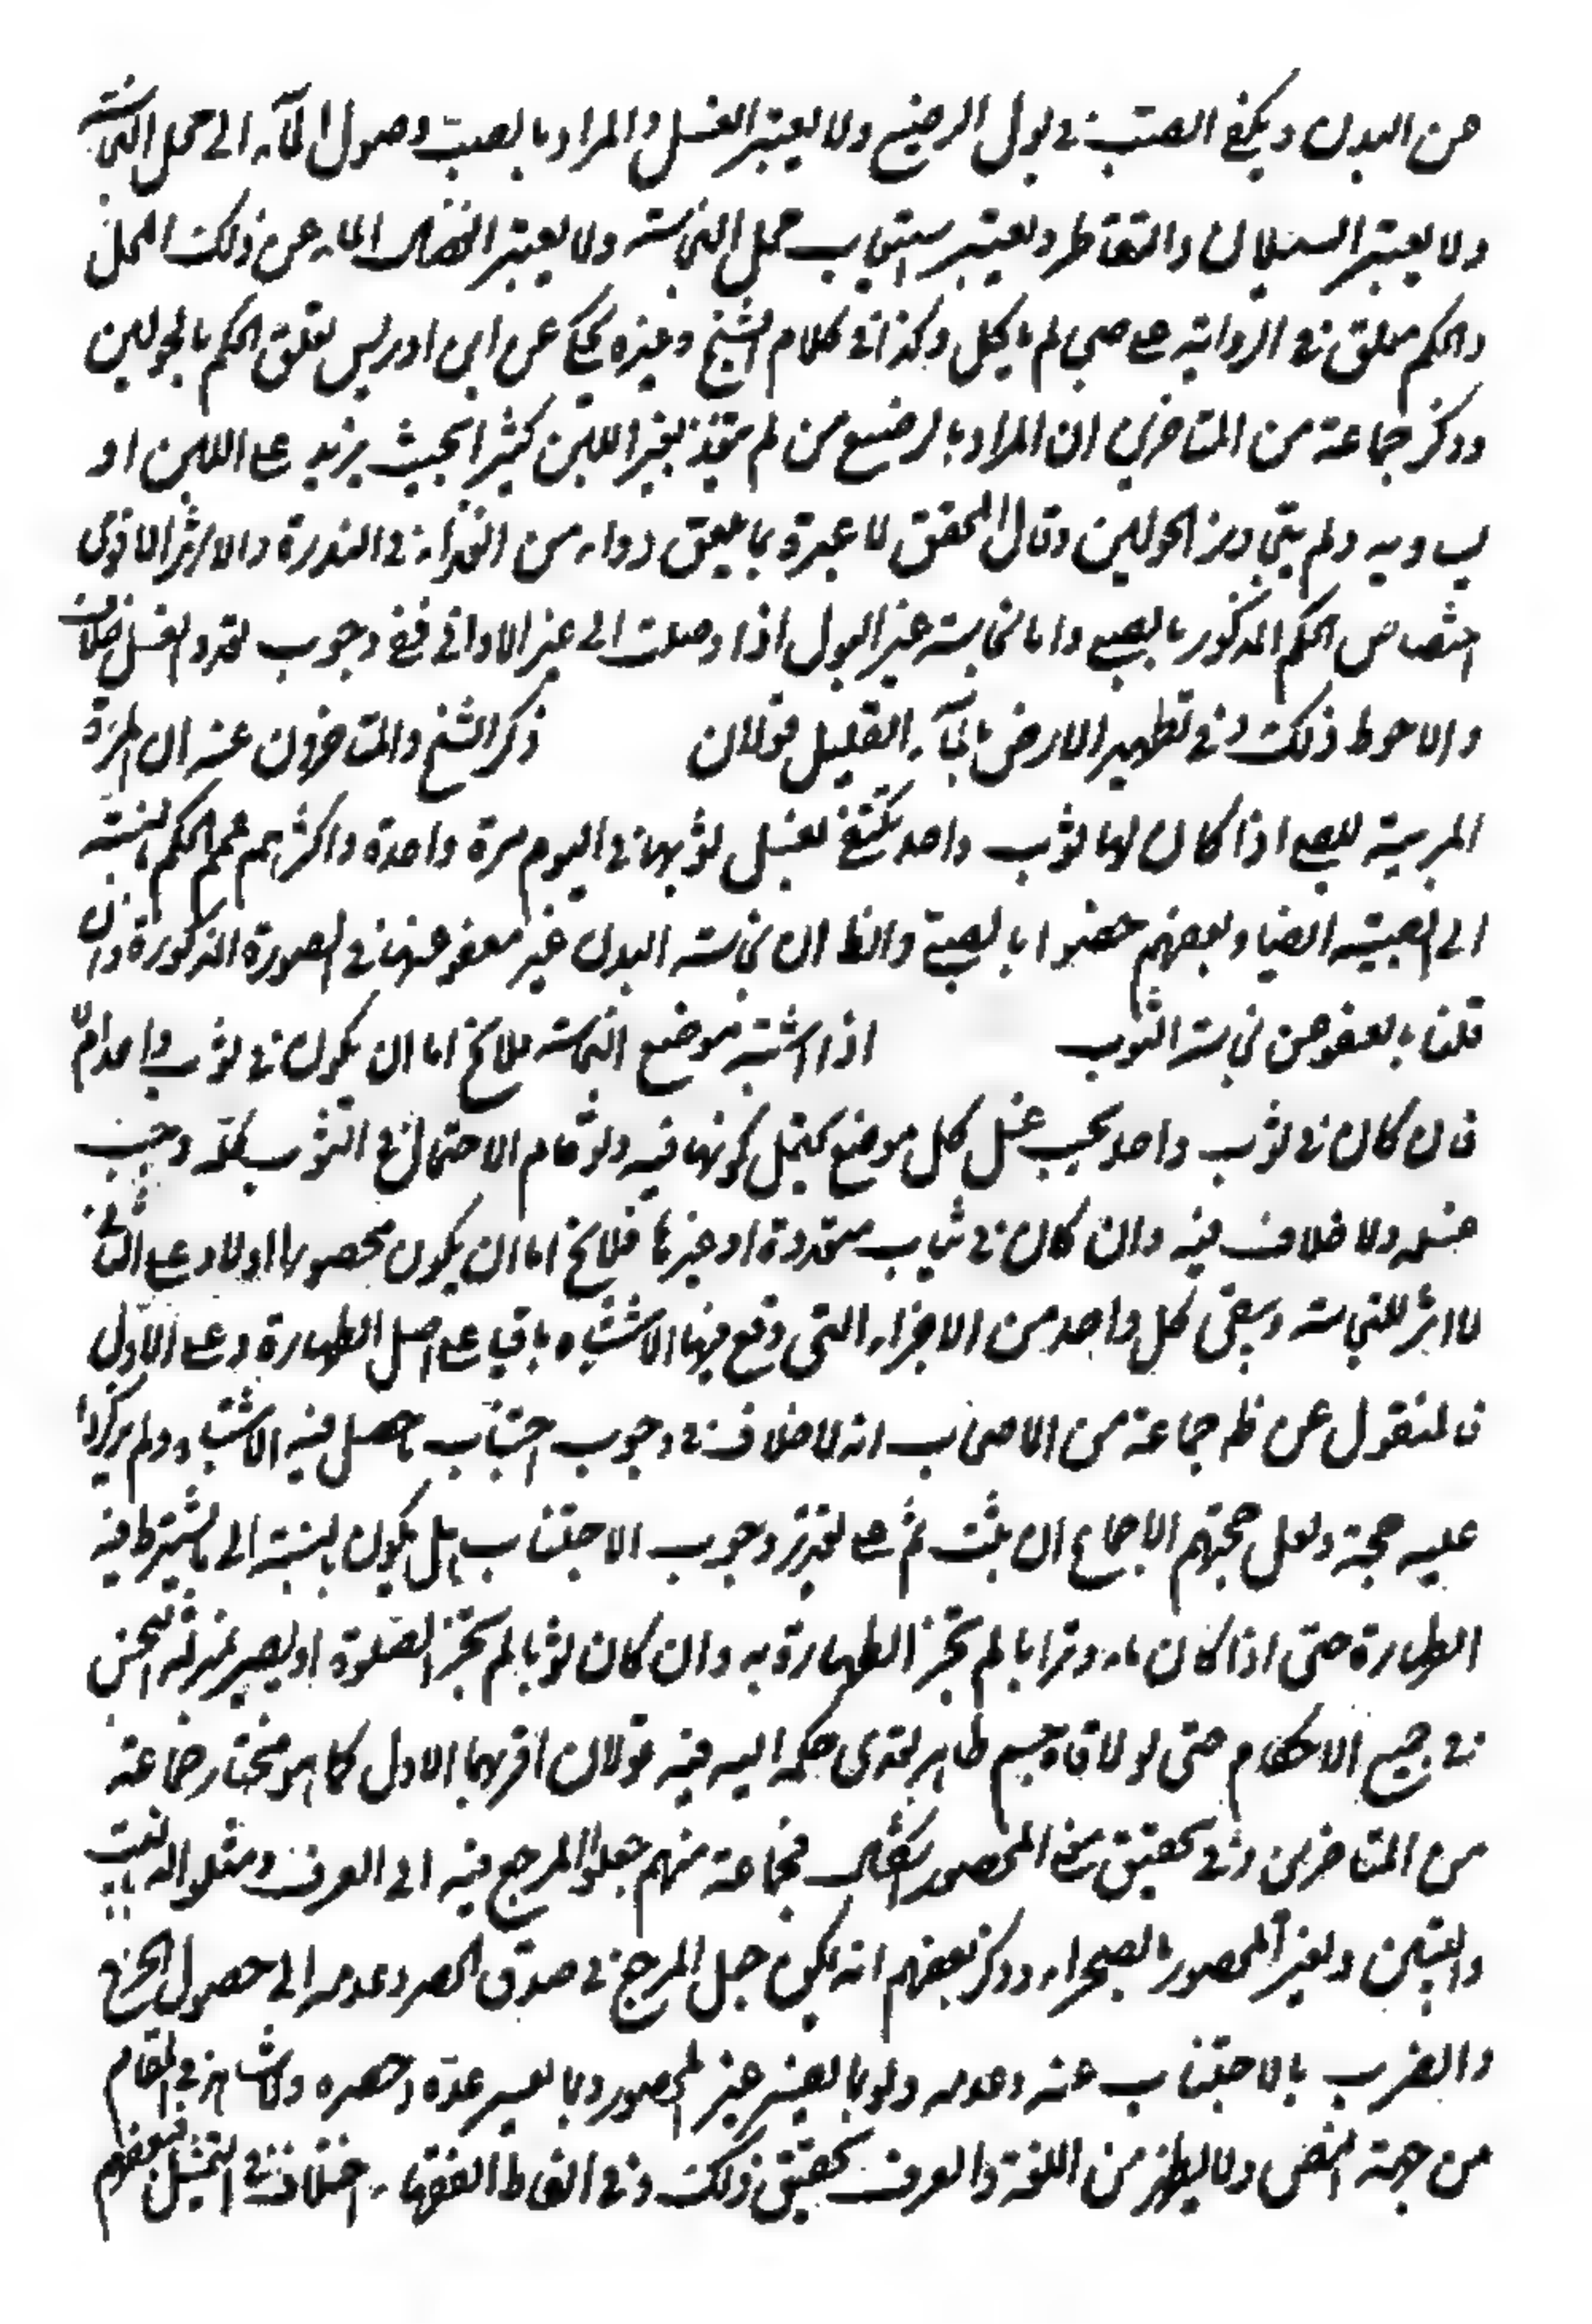 من البدن ويكفى الصب فى بول الرضيع ولا يعتبر الغسل والمراد بالصب وصول المآء الى محل النجاسة
ولا يعتبر السيلان والتقاطر ويعتبر استيعاب محل النجاسة ولا يعتبر انفصال الماء عن ذلك المحل
والحكم معلق فى الرواية على صبى لم ياكل وكذا فى كلام الشيخ وغيره يحكى عن ابن ادريس تعلق الحكم بالحولين
وذكر جماعة من المتاخرين ان المراد بالرضيع من لم يتغذ بغير اللبن كثيرا بحيث يزيد على اللبن او
يساويه ولم يتجاوز الحولين وقال المحقق لا عبرة بما يلعق دواء من الغذاء فى الندرة والاشهر الاقوى
اختصاص الحكم المذكور بالصبى واما نجاسة غير البول اذا وصلت الى غير الاوانى ففى وجوب تعدد الغسل خلاف
والاحوط ذلك وفى تطهير الارض بالمآء القليل قولان ذكر الشيخ والمتاخرون عنه ان المرءة
المربية للصبى اذا كان لها ثوب واحد يكتفى بغسل ثوبها فى اليوم مرة واحدة واكثرهم عمم الحكم بالنسبة
الى الصبية ايضا وبعضهم خصوا بالصبى والظ ان نجاسة البدن غير معفو عنها فى الصورة المذكورة وان
قلنا بالعفو من نجاسة الثوب اذا اشتبه موضع النجاسة فلا يخ اما ان يكون فى ثوب واحد ام لا
فان كان فى ثوب واحد يجب غسل كل موضع يحتمل كونها فيه ولو قام الاحتمال فى الثوب بكله وجب
غسله ولا خلاف فيه وان كان فى ثياب متعددة او غيرها فلا يخ اما ان يكون محصورا اولا وعلى الثانى
لا اثر للنجاسة ويبقى كل واحد من الاجزاء التى وقع فيها الاشتباه باقيا على اصل الطهارة وعلى الاول
فالمنقول عن ظ جماعة من الاصحاب انه لا خلاف فى وجوب اجتناب ما حصل فيه الاشتباه ولم يذكروا
عليه حجة ولعل حجتهم الاجماع ان ثبت ثم على تقدير وجوب الاجتناب هل يكون بالنسبة الى ما يشترط فيه
الطهارة حتى اذا كان ماء وترابا لم يجز الطهارة به وان كان ثوبا لم يجز الصلوة او يصير بمنزلة النجس
فى جميع الاحكام حتى لو لاقاه جسم طاهر تعدى حكمه اليه فيه قولان اقربهما الاول كما هو مختار جماعة
من المتاخرين وفى تحقيق معنى المحصور اشكال فجماعة منهم جعلوا المرجع فيه الى العرف ومثلوا له بالبيت
والبيتين ولغير المحصور بالصحراء وذكر بعضهم انه يمكن جعل المرجع فى صدق الحصر وعدمه الى حصول الحرج
والضرر بالاجتناب عنه وعدمه ولو بالعسر غير المحصور وبما يعسر عده وحصره ولا شاهد فى المقام
من جهة النص ولا يظهر من اللغة والعرف تحقيق ذلك وفى الفاظ الفقهاء اختلاف فى التمثيل فبعضهم